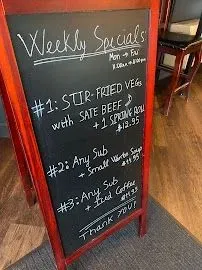 Weekly Specials
Mon → Fri
11:00am → 4:00pm
#1: STIR-FRIED VEGS
with SATE BEEF
+ 1 SPRING ROLL
$13.95
#2: Any Sub
+ Small Wonton Soup
#3: Any Sub
+ Iced Coffee
THANK YOU!